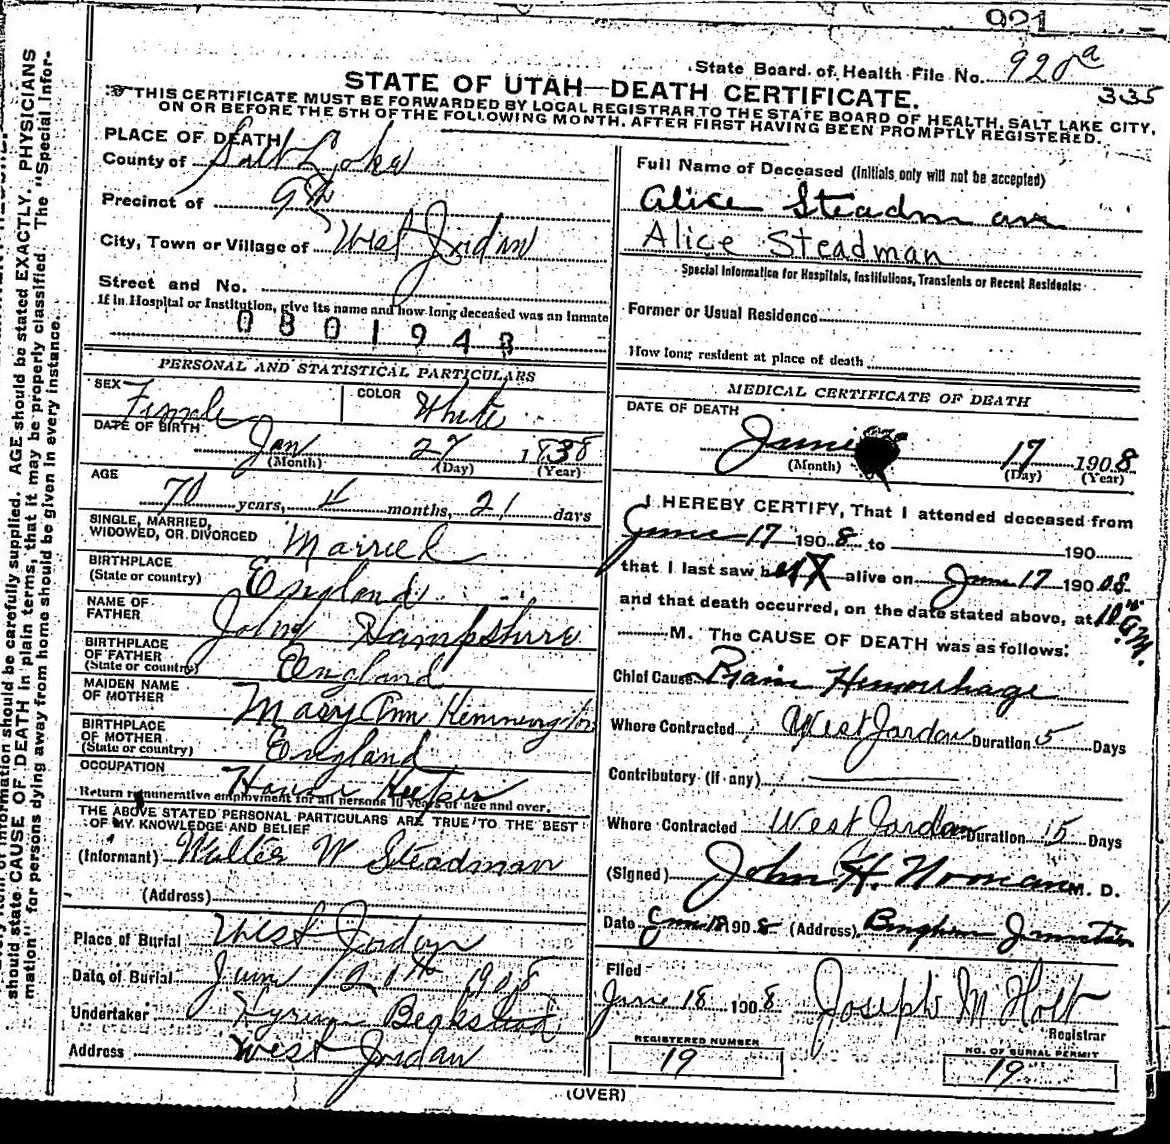 921
State Board of Health File No. 920a
335
STATE OF UTAH—DEATH CERTIFICATE.
THIS CERTIFICATE MUST BE FORWARDED BY LOCAL REGISTRAR TO THE STATE BOARD OF HEALTH, SALT LAKE CITY,
ON OR BEFORE THE 5TH OF THE FOLLOWING MONTH, AFTER FIRST HAVING BEEN PROMPTLY REGISTERED.
PLACE OF DEATH
County of Salt Lake
Precinct of 9th
City, Town or Village of West Jordan
Street and No.
If in Hospital or Institution, give its name and how long deceased was an Inmate
0801943
PERSONAL AND STATISTICAL PARTICULARS
SEX Female COLOR White
DATE OF BIRTH
Jan 27 1838
(Month) (Day) (Year)
AGE
70 years, 4 months, 21 days
SINGLE, MARRIED,
WIDOWED, OR DIVORCED Married
BIRTHPLACE
(State or country) England
NAME OF
FATHER John Hampshire
BIRTHPLACE
OF FATHER
(State or country) England
MAIDEN NAME
OF MOTHER Mary Ann
BIRTHPLACE
OF MOTHER
(State or country) England
OCCUPATION House Keeper
Return remunerative employment for all persons 10 years of age and over.
THE ABOVE STATED PERSONAL PARTICULARS ARE TRUE TO THE BEST
OF MY KNOWLEDGE AND BELIEF
(Informant) Walter W Steadman
(Address)
Place of Burial West Jordan
Date of Burial June 20th 1908
Undertaker Hyrum Beckstead
Address West Jordan
Full Name of Deceased (Initials only will not be accepted)
Alice Steadman
Alice Steadman
Special Information for Hospitals, Institutions, Transients or Recent Residents:
Former or Usual Residence
How long resident at place of death
MEDICAL CERTIFICATE OF DEATH
DATE OF DEATH
June 17 1908
(Month) (Day) (Year)
I HEREBY CERTIFY, That I attended deceased from
June 17 1908 to 190
that I last saw her alive on June 17 190 08
and that death occurred, on the date stated above, at 10 a.m.
M. The CAUSE OF DEATH was as follows:
Chief Cause Brain Hemorrhage
Where Contracted West Jordan Duration 5 Days
Contributory (if any)
Where Contracted West Jordan Duration 15 Days
(Signed) John H. Noonan M. D.
Date June 18 1908 (Address) Bingham Junction
Filed
June 18 1908 Joseph M Holt
Registrar
REGISTERED NUMBER
19
NO. OF BURIAL PERMIT
19
(OVER)
should state CAUSE OF DEATH in plain terms, that it may be properly classified. The "Special Infor-
mation" for persons dying away from home should be given in every instance.